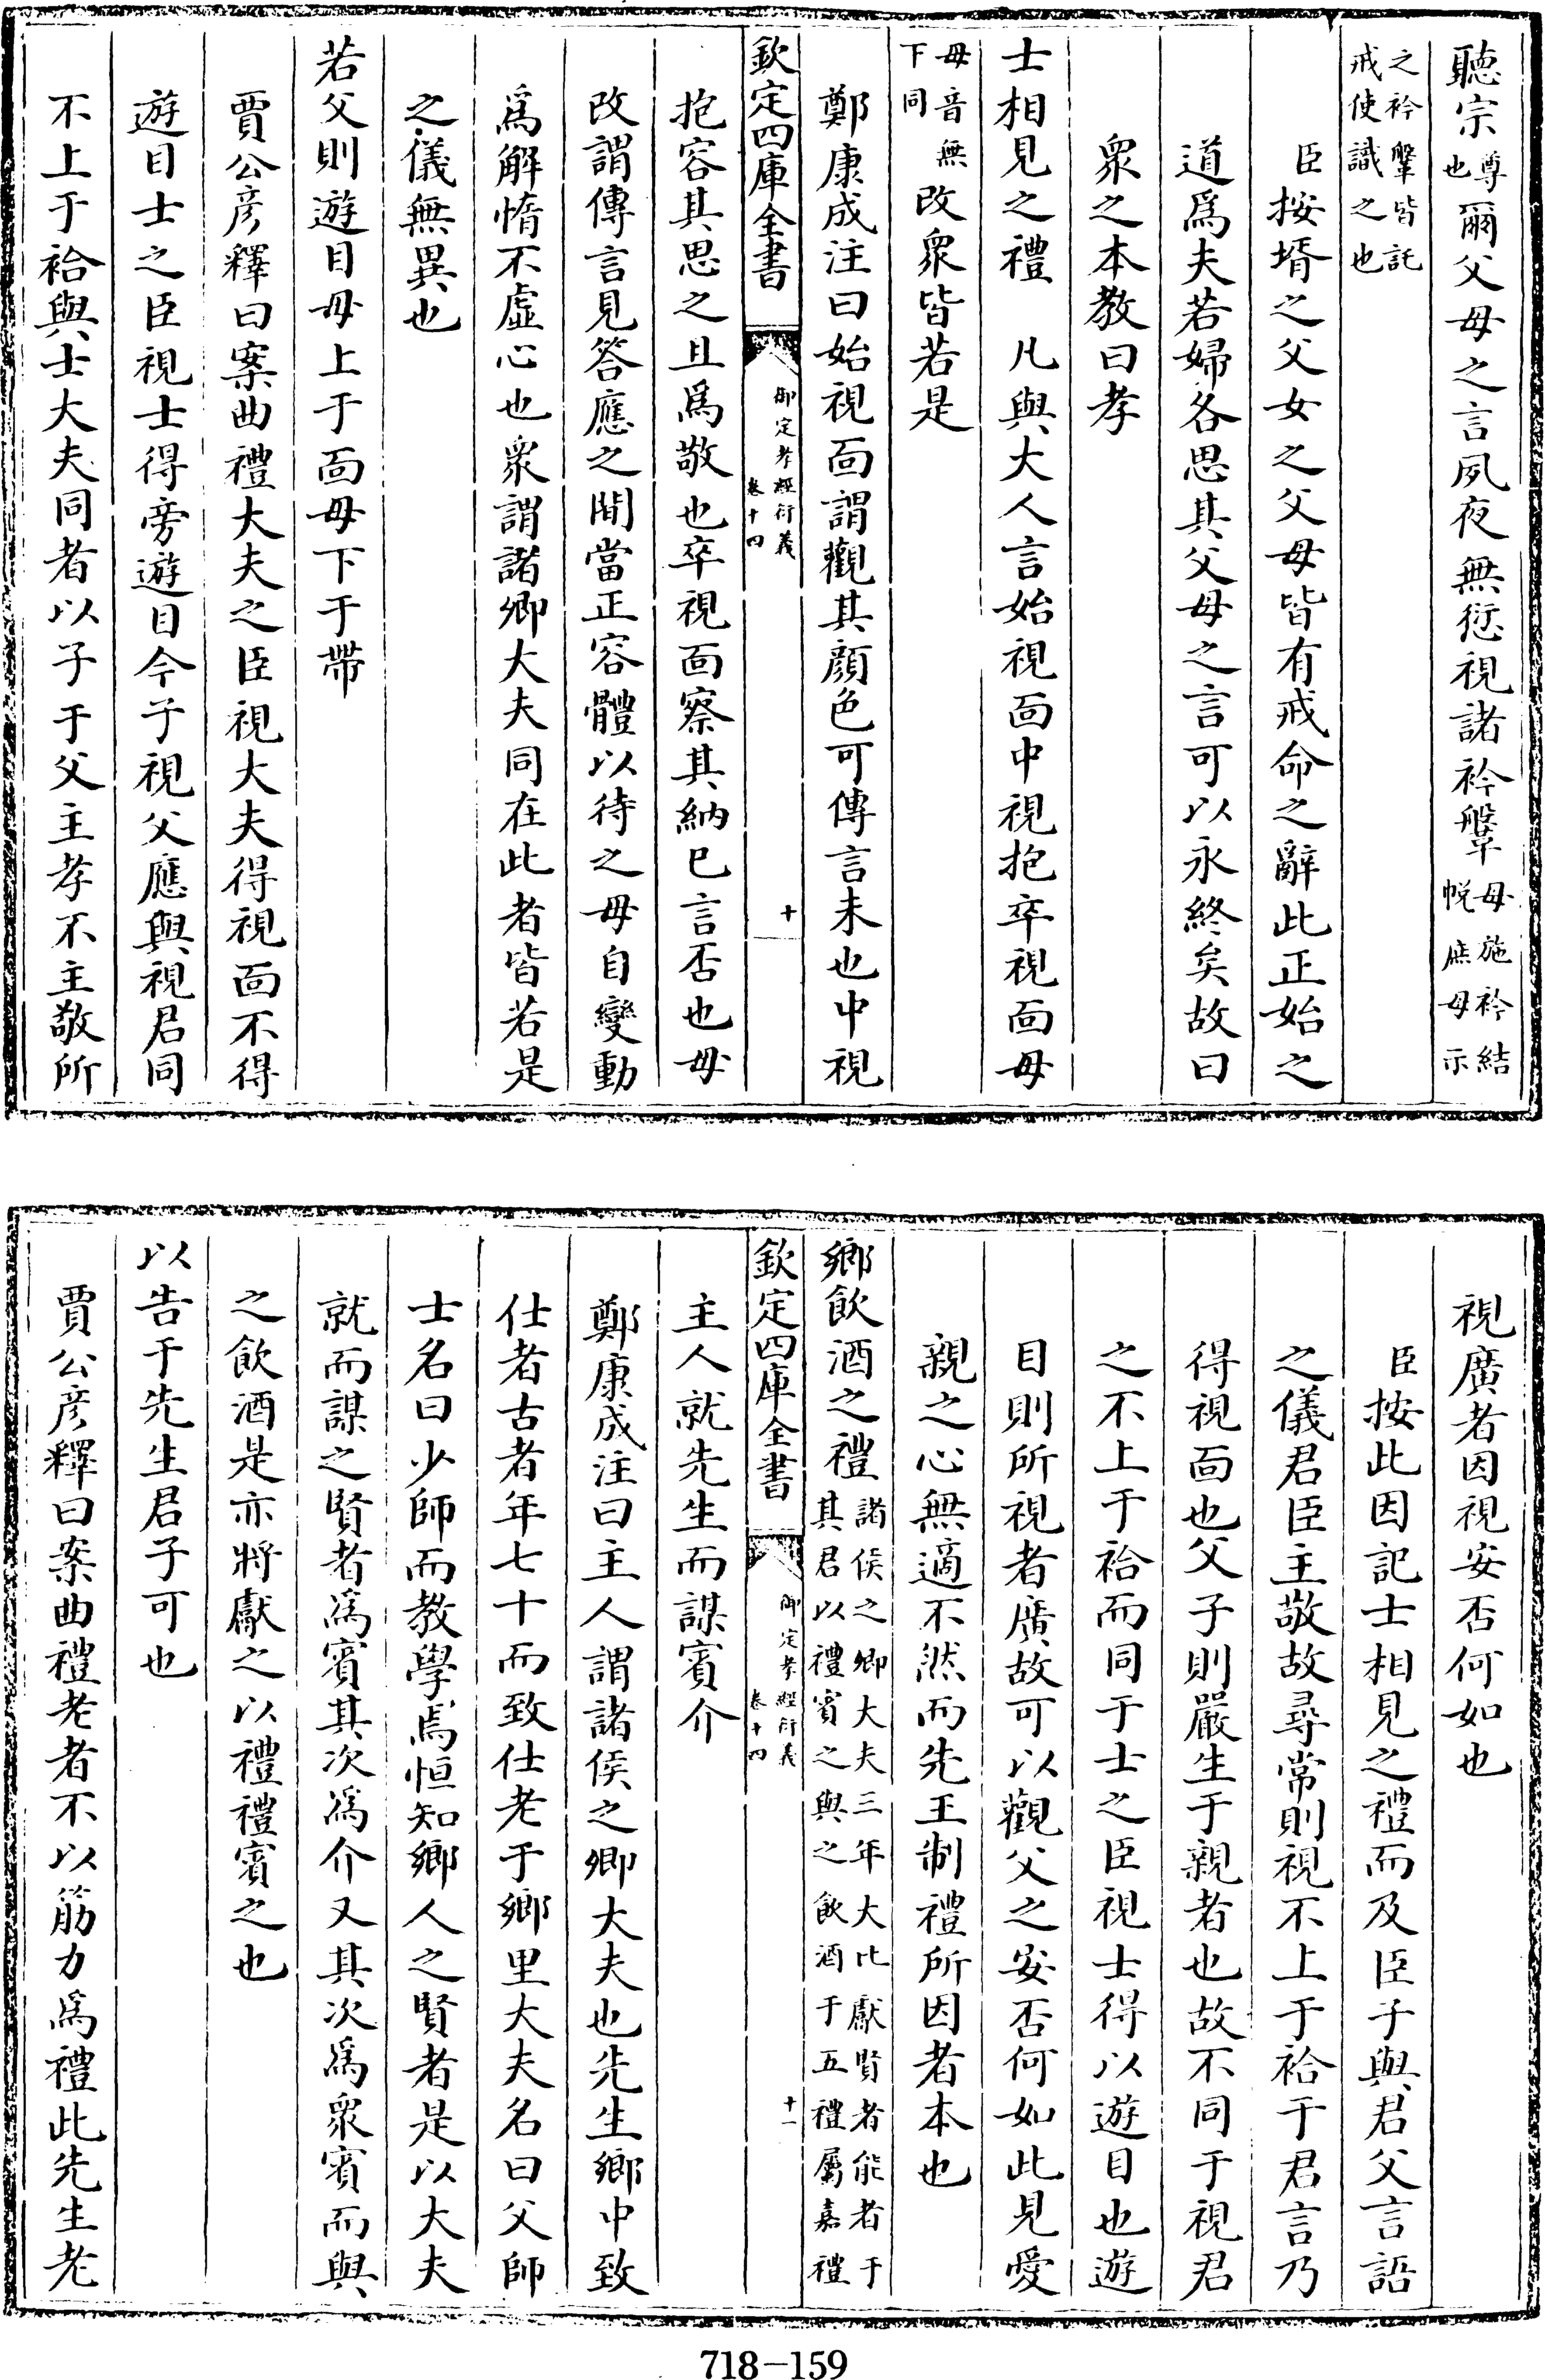 聽宗尊也爾父母之言夙夜無愆視諸衿鞶母施衿結帨庶母示
之衿鞶皆託戒使識之也
臣按壻之父女之父母皆有戒命之辭此正始之
道爲夫若婦各思其父母之言可以永終矣故曰
衆之本教曰孝
士相見之禮　凡與大人言始視面中視抱卒視面毋
毋音無下同改衆皆若是
鄭康成注曰始視面謂觀其顔色可傳言未也中視
欽定四庫全書　御定孝經衍義卷十四　十
抱容其思之且爲敬也卒視面察其納已言否也毋
改謂傳言見答應之間當正容體以待之毋自變動
爲解惰不虛心也衆謂諸卿大夫同在此者皆若是
之儀無異也
若父則遊目毋上于面毋下于帶
賈公彦釋曰案曲禮大夫之臣視大夫得視面不得
遊目士之臣視士得旁遊目今子視父應與視君同
不上于袷與士大夫同者以子于父主孝不主敬所
視廣者因視安否何如也
臣按此因記士相見之禮而及臣子與君父言語
之儀君臣主敬故尋常則視不上于袷于君言乃
得視面也父子則嚴生于親者也故不同于視君
之不上于袷而同于士之臣視士得以遊目也遊
目則所視者廣故可以觀父之安否何如此見愛
親之心無適不然而先王制禮所因者本也
鄉飲酒之禮諸侯之卿大夫三年大比獻賢者能者于其君以禮賓之與之飲酒于五禮屬嘉禮
欽定四庫全書　御定孝經衍義卷十四　十一
主人就先生而謀賓介
鄭康成注曰主人謂諸侯之卿大夫也先生鄉中致
仕者古者年七十而致仕老于鄉里大夫名曰父師
士名曰少師而教學焉恒知鄉人之賢者是以大夫
就而謀之賢者爲賓其次爲介又其次爲衆賓而與
之飲酒是亦將獻之以禮禮賓之也
以告于先生君子可也
賈公彦釋曰案曲禮老者不以筋力爲禮此先生老
718-159